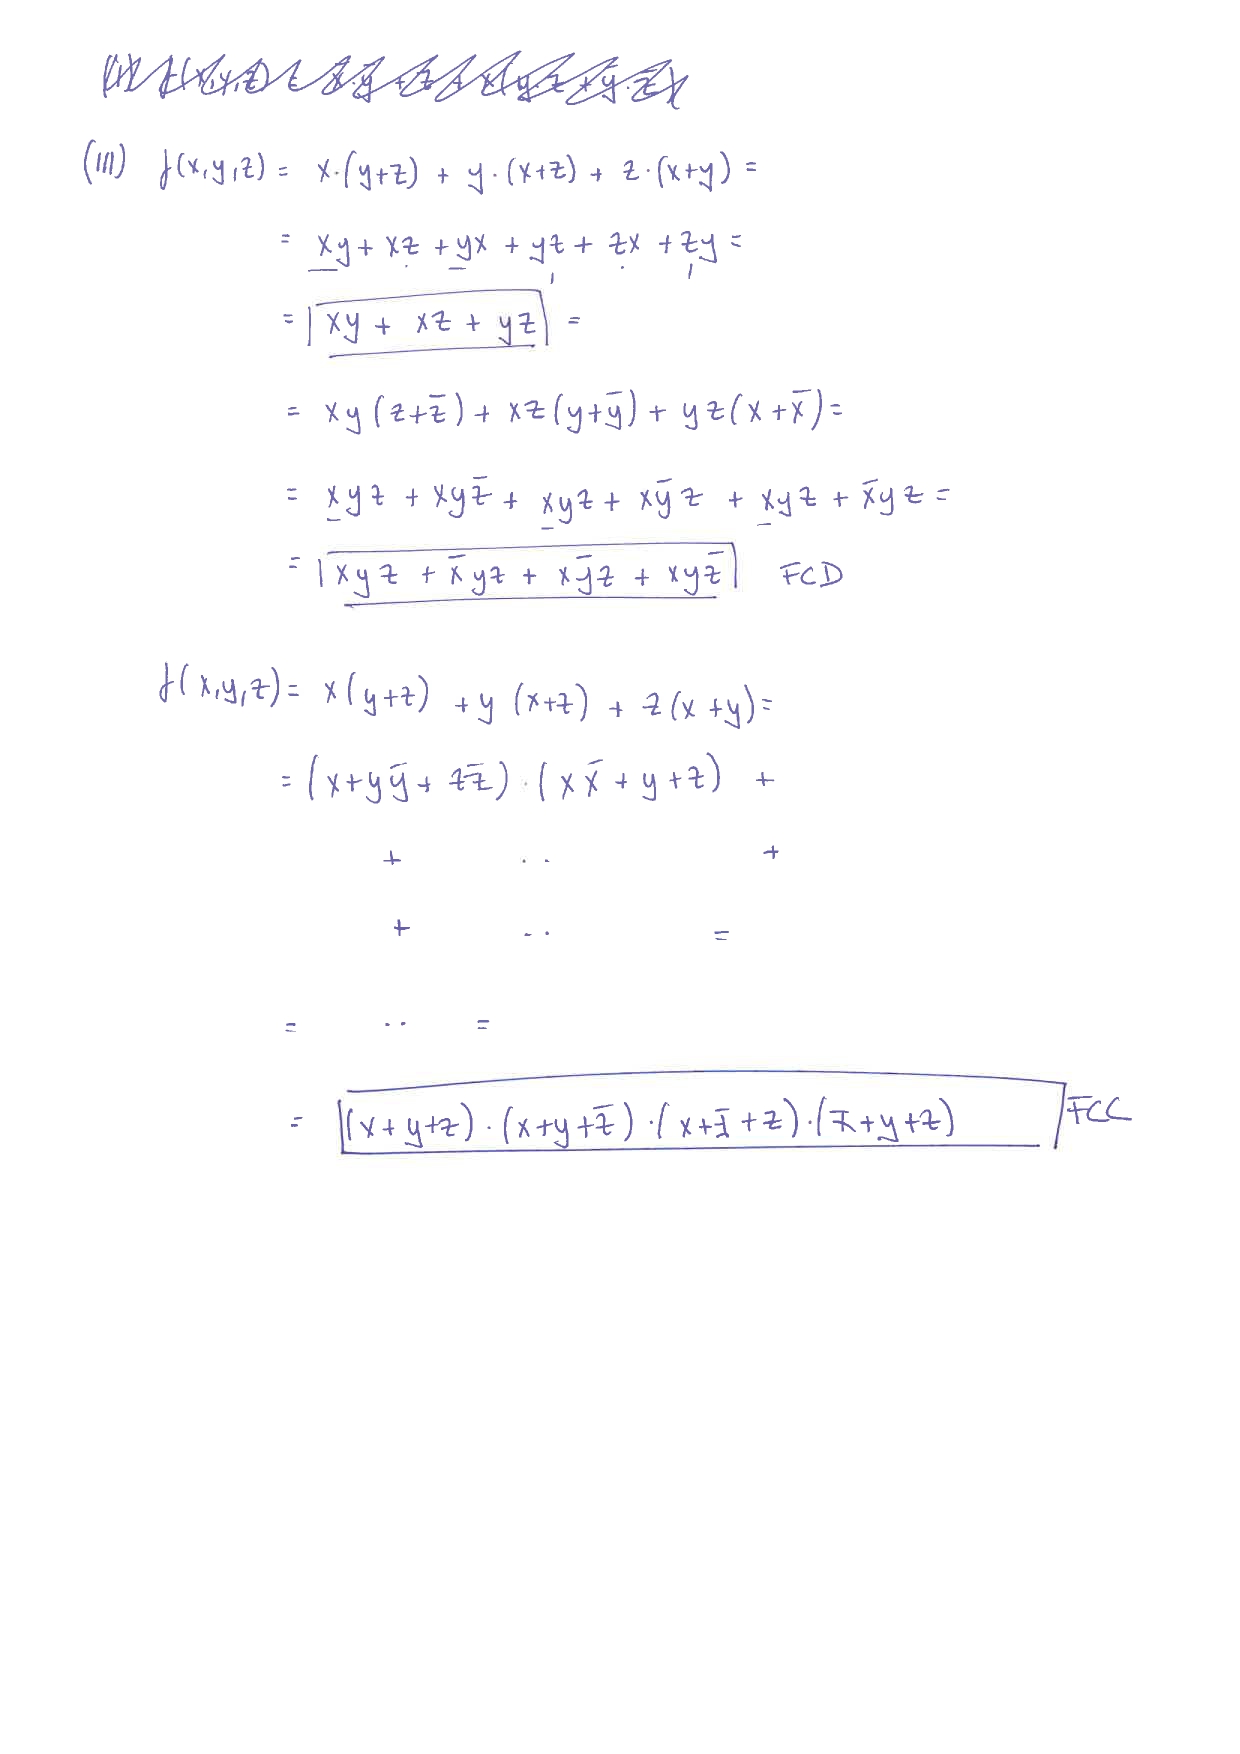 (III) f(x,y,z) = x·(y+z) + y·(x+z) + z·(x+y) =
= xy + xz + yx + yz + zx + zy =
= xy + xz + yz =
= xy(z+z̄) + xz(y+ȳ) + yz(x+x̄) =
= xyz + xyz̄ + xyz + xȳz + xyz + x̄yz =
= xyz + x̄yz + xȳz + xyz̄ FCD
f(x,y,z) = x(y+z) + y(x+z) + z(x+y) =
= (x+yȳ+zz̄)·(xx̄+y+z) +
+ ·· +
+ ·· =
= ·· =
= (x+y+z)·(x+y+z̄)·(x+ȳ+z)·(x̄+y+z) FCC